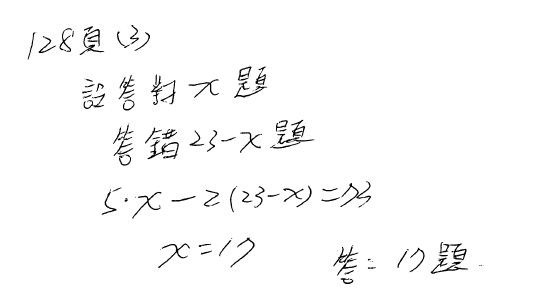 128頁(3)
設答對x題
答錯23-x題
5·x-2(23-x)=73
x=17
答=17題.